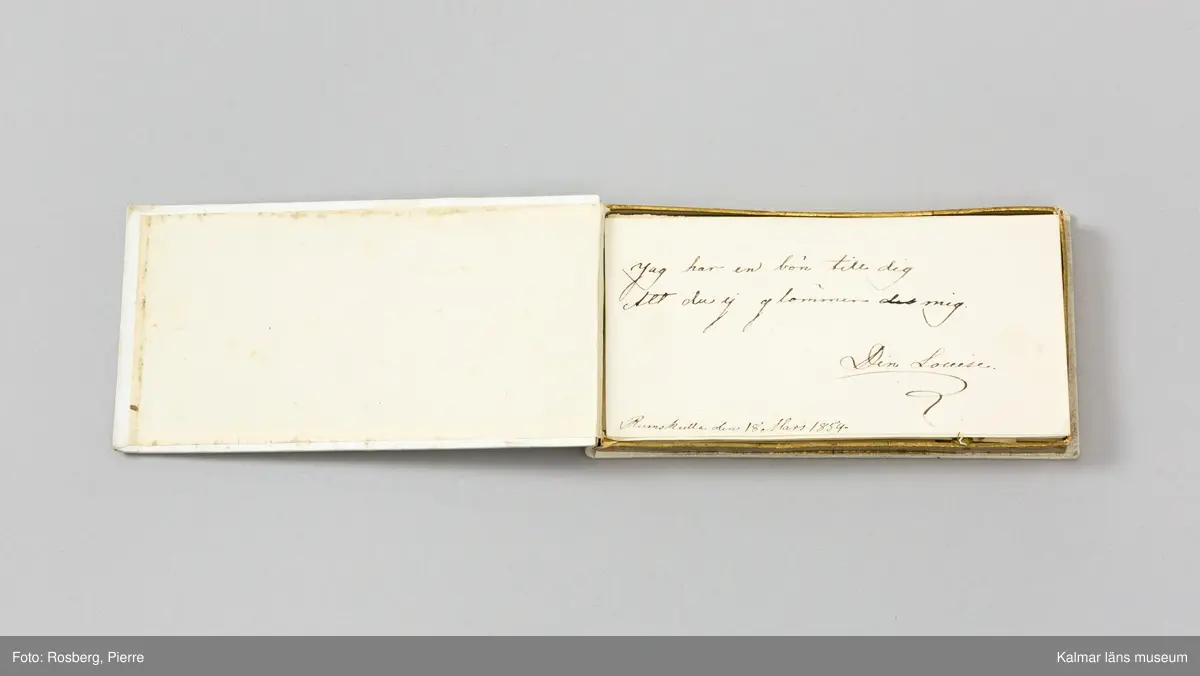 Jag har en bön till dig
Att du ej glömmer mig.
Din Louise.
Rumskulla den 18 Mars 1854.
Foto: Rosberg, Pierre
Kalmar läns museum